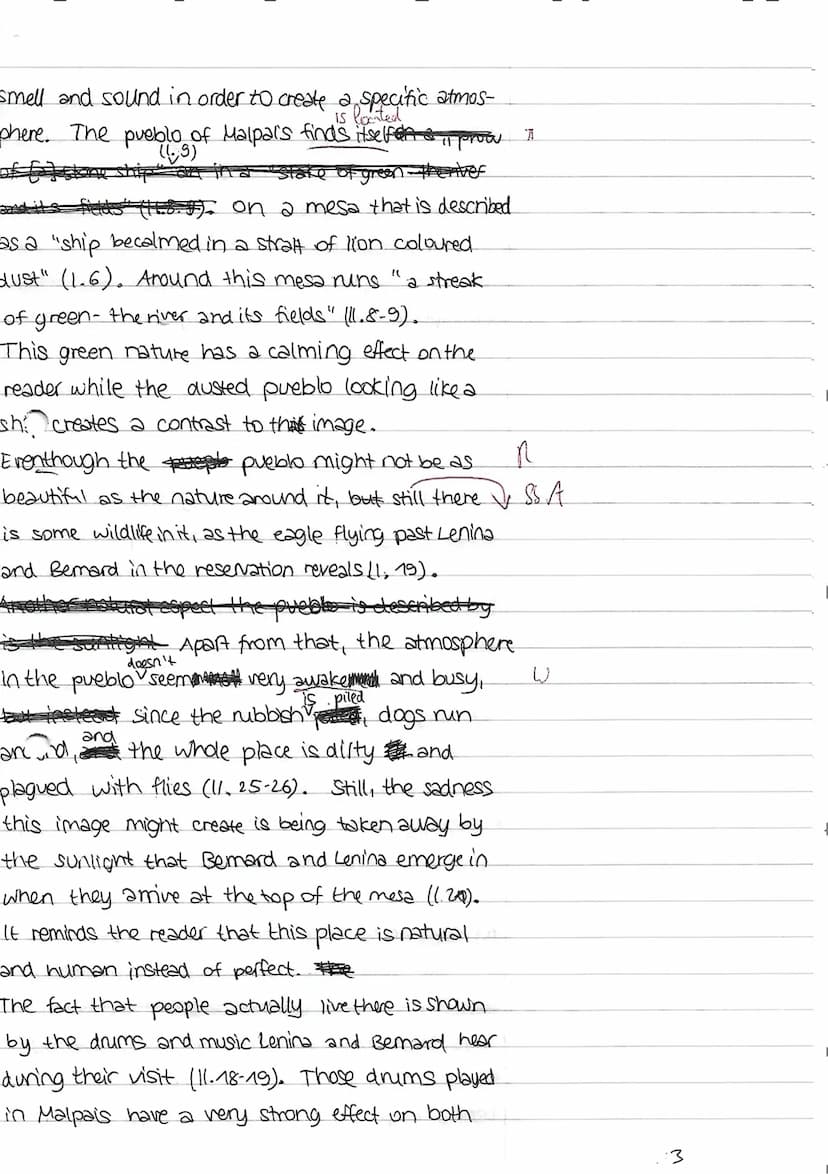 smell and sound in order to create a specific atmos-
is located
phere. The pueblo of Malpais finds itself on a "prow
(l. 9)
of [a] stone ship" an in a "stake of green - the river
and its fields" (ll. 8-9). on a mesa that is described
as a "ship becalmed in a strait of lion coloured
dust" (l. 6). Around this mesa runs "a streak
of green - the river and its fields" (ll. 8-9).
This green nature has a calming effect on the
reader while the dusted pueblo looking like a
creates a contrast to this image.
Eventhough the pueblo might not be as R
beautiful as the nature around it, but still there SS A
is some wildlife in it, as the eagle flying past Lenina
and Bernard in the reservation reveals (l. 19).
Another natural aspect the pueblo is described by
is the sunlight Apart from that, the atmosphere
doesn't
in the pueblo seem very awake and busy, W
is piled
but instead since the rubbish, dogs run
and
the whole place is dirty and
plagued with flies (ll. 25-26). Still, the sadness
this image might create is being taken away by
the sunlight that Bernard and Lenina emerge in
when they arrive at the top of the mesa (l. 20).
It reminds the reader that this place is natural
and human instead of perfect. The
The fact that people actually live there is shown
by the drums and music Lenina and Bernard hear
during their visit (ll. 18-19). Those drums played
in Malpais have a very strong effect on both
3